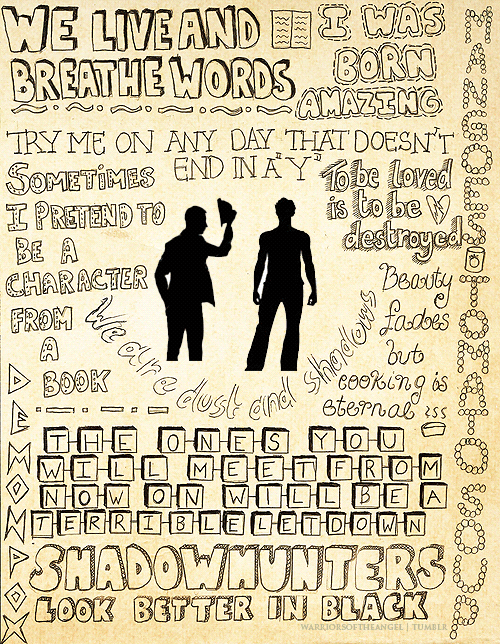 WE LIVE AND
BREATHE WORDS
I WAS
BORN
AMAZING
TRY ME ON ANY DAY THAT DOESN'T
END IN A "Y"
SOMETIMES
I PRETEND TO
BE A
CHARACTER
FROM
A
BOOK
To be loved
is to be
destroyed
We are dust and shadows
Beauty
fades
but
cooking is
eternal
MANGOES TOMATO SOUP
DEMON POX
THE ONES YOU
WILL MEET FROM
NOW ON WILL BE A
TERRIBLE LETDOWN
SHADOWHUNTERS
LOOK BETTER IN BLACK
WARRIORSOFTHEANGEL | TUMBLR